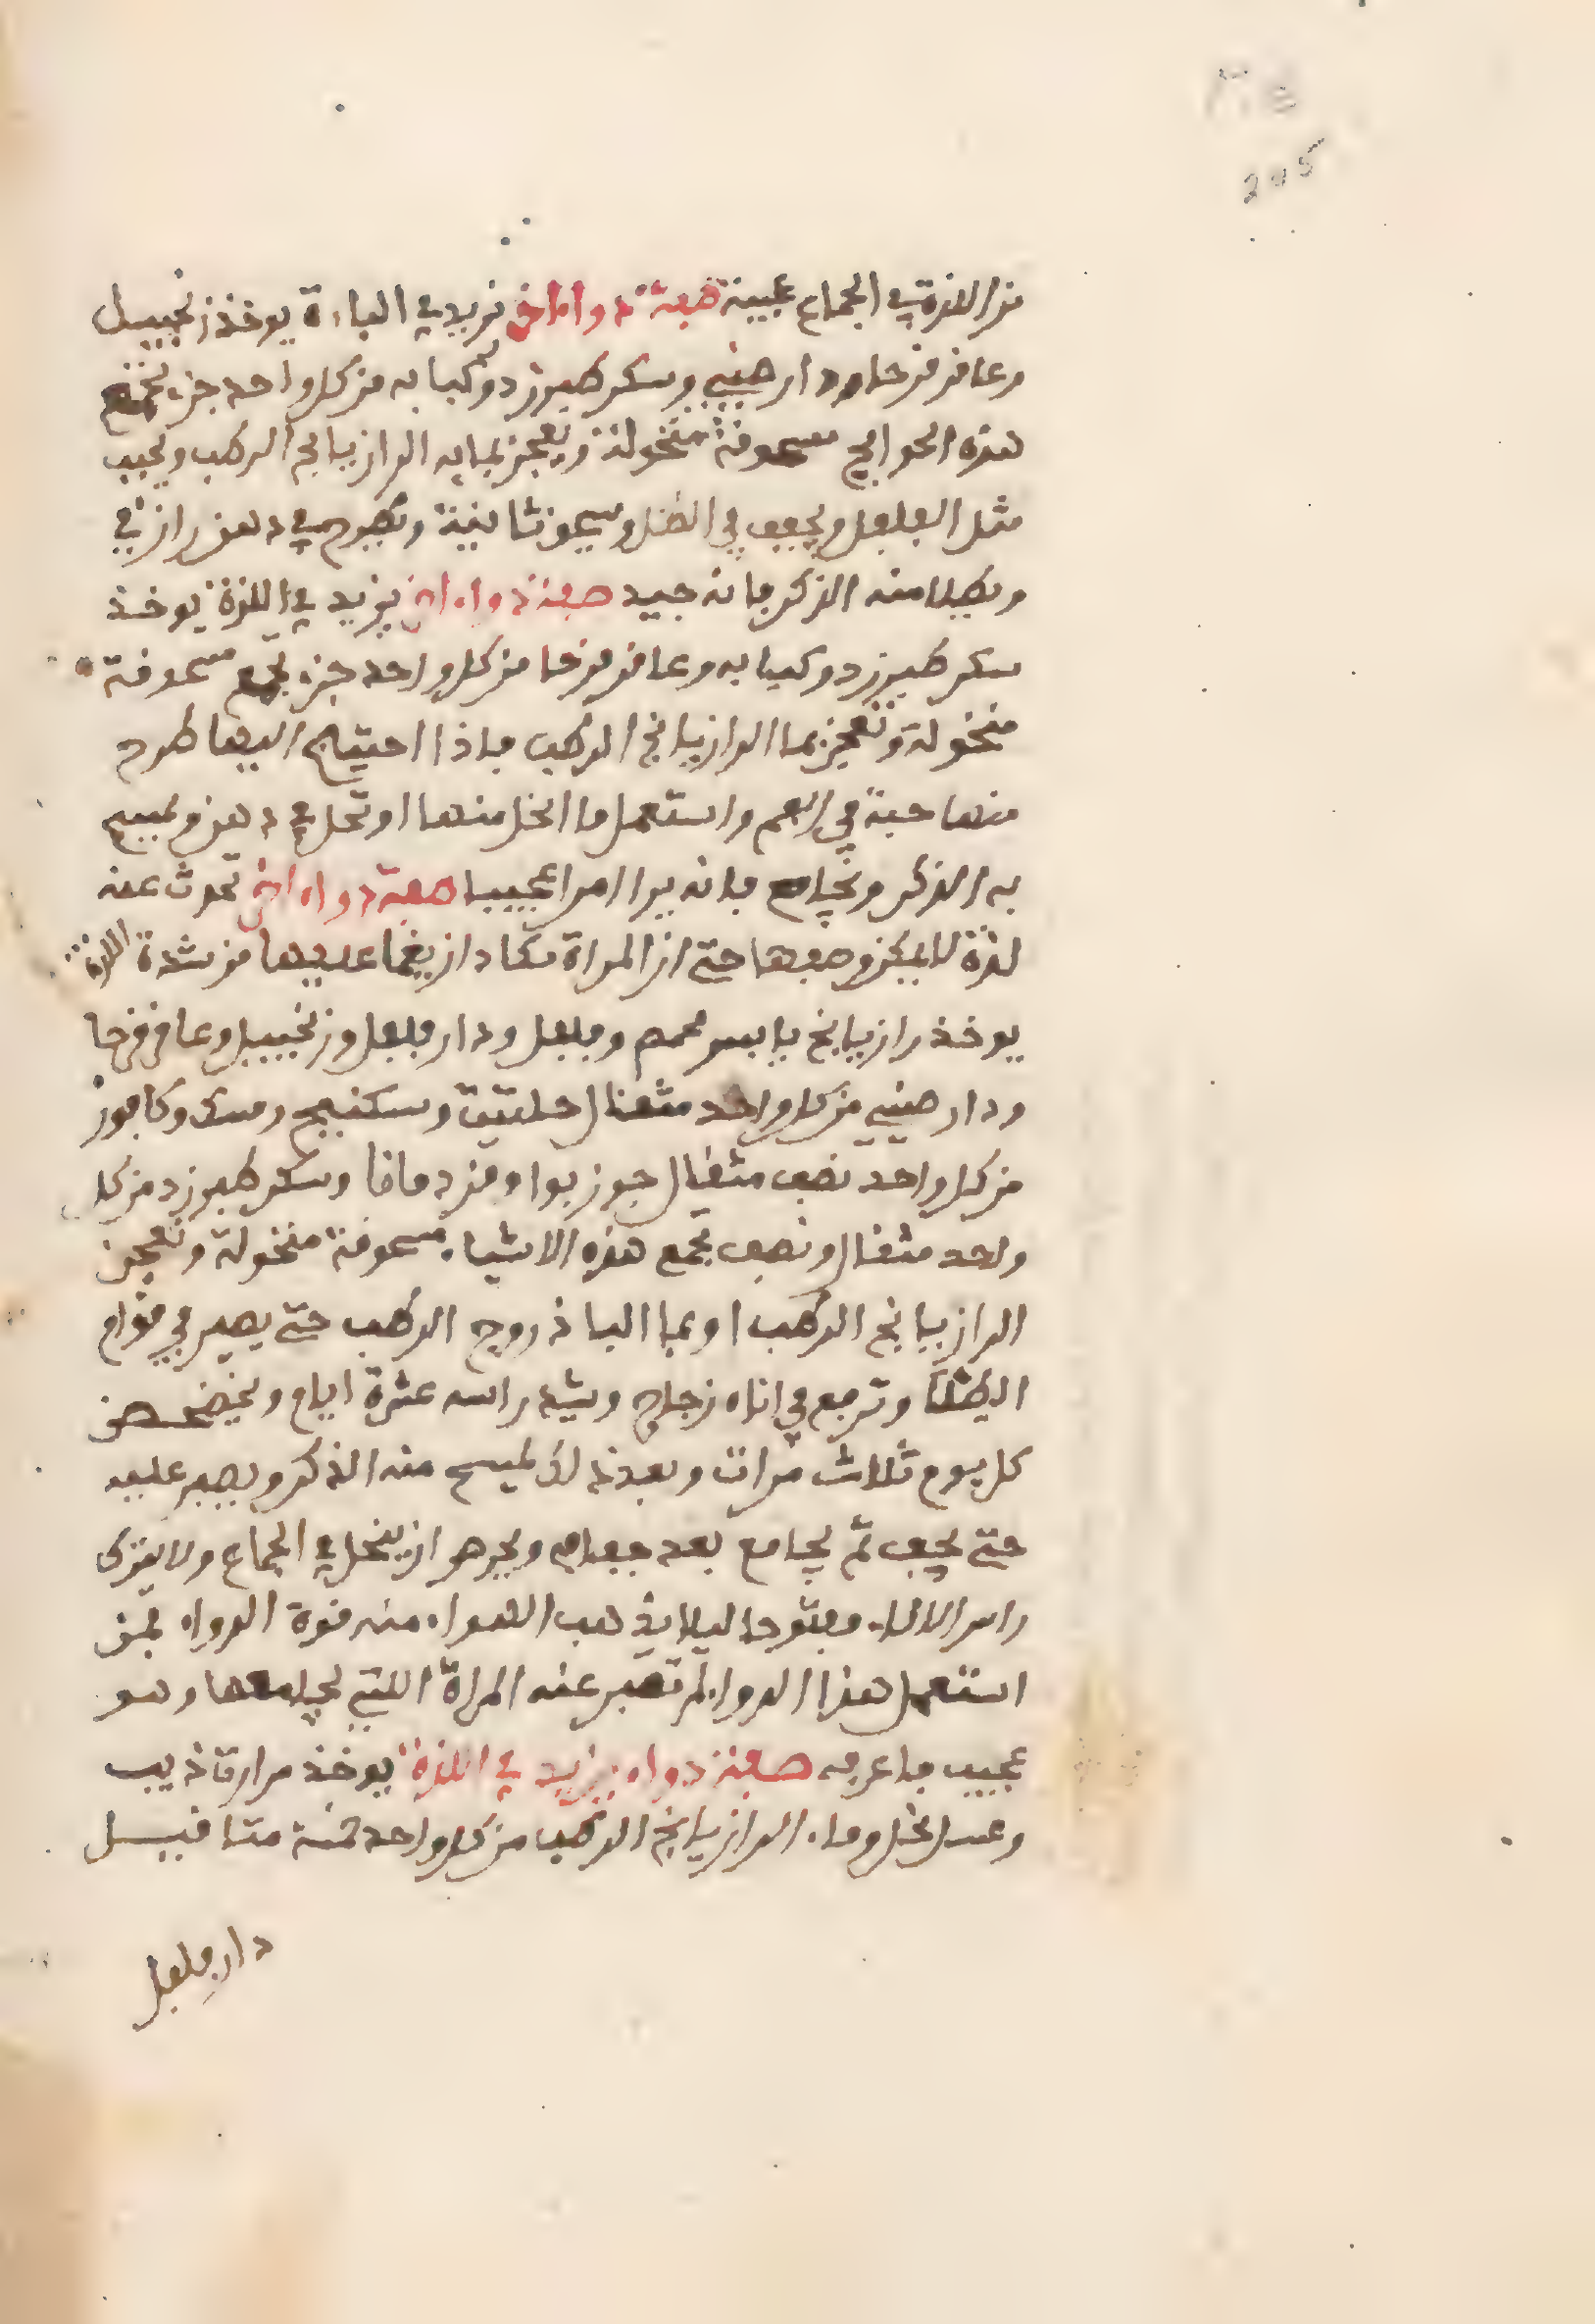 205
من اللذة في الجماع عجيبة صفة دواء اخر تزيد في الباءة يوخذ زنجبيل
وعاقر قرحا ودار صيني وسكر طبرزد وكبابه من كل واحد جزء تجمع
هذه الحوايج مسحوقة منخولة وتعجن بمايه الرازيانج الرطب ويحبب
مثل الفلفل ويجفف في الظل ويسحق ثانية ويطرح في دهن رازقي
ويطلا منه الذكر فانه جيد صفة دواء اخر يزيد في اللذة يوخذ
سكر طبرزد وكبابه وعاقر قرحا من كل واحد جزء تجمع مسحوقة
منخولة وتعجن بما الرازيانج الرطب فاذا احتيج اليها طرح
منها حبة في الفم واستعمل ما انحل منها او تحل في دهن ويمسح
به الذكر ويجامع فانه يرا امرا عجيبا صفة دواء اخر تحدث عنه
لذة لا يمكن وصفها حتى ان المراة تكاد ان يغما عليها من شدة اللذة
يوخذ رازيانج يابس محمص وفلفل ودار فلفل وزنجبيل وعاقر قرحا
ودار صيني من كل واحد مثقال حلتيت وسكبينج ومسك وكافور
من كل واحد نصف مثقال جوز بوا وقردمانا وسكر طبرزد من كل
واحد مثقال ونصف تجمع هذه الاشياء مسحوقة منخولة وتعجن
الرازيانج الرطب او بما الباذروج الرطب حتى يصير في قوام
الطلا وترفع في اناء زجاج ويشد راسه عشرة ايام ويخضخض
كل يوم ثلاث مرات وبعد ذلك يمسح منه الذكر ويصبر عليه
حتى يجف ثم يجامع بعد جفافه ويجرهو ان ينحل في الجماع ولا يترك
راس الاناء مفتوحا ليلا يذهب الهواء منه قوة الدواء فمن
استعمل هذا الدواء لم تصبر عنه المراة اللتي يجامعها وهو
عجيب فاعرفه صفة دواء يزيد في اللذة يوخذ مرارة ذيب
وعسل نحل وماء الرازيانج الرطب من كل واحد خمسة مثاقيل
دار فلفل